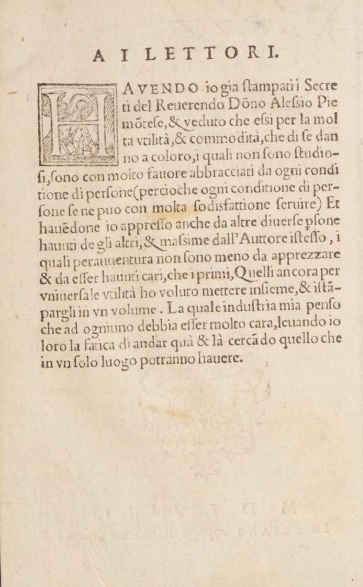 A I LETTORI.
HAVENDO io gia ſtampati i Secre
ti del Reuerendo Dōno Aleſsio Pie
mōteſe, & veduto che eſsi per la mol
ta vtilità, & commodità, che di ſe dan
no a coloro, i quali non ſono studio-
ſi, ſono con molto fauore abbracciati da ogni condi
tione di perſone (percioche ogni conditione di per-
ſone ſe ne puo con molta ſodisfattione ſeruire) Et
hauēdone io appreſſo anche da altre diuerſe pſone
hauuti de gli altri, & maſsime dall'Auttore iſteſſo, i
quali perauuentura non ſono meno da apprezzare
& da eſſer hauuti cari, che i primi, Quelli ancora per
vniuerſale vtilità ho voluto mettere inſieme, & iſtā-
pargli in vn volume. La quale induſtria mia penſo
che ad ogniuno debbia eſſer molto cara, leuando io
loro la fatica di andar quà & là cercādo quello che
in vn ſolo luogo potranno hauere.